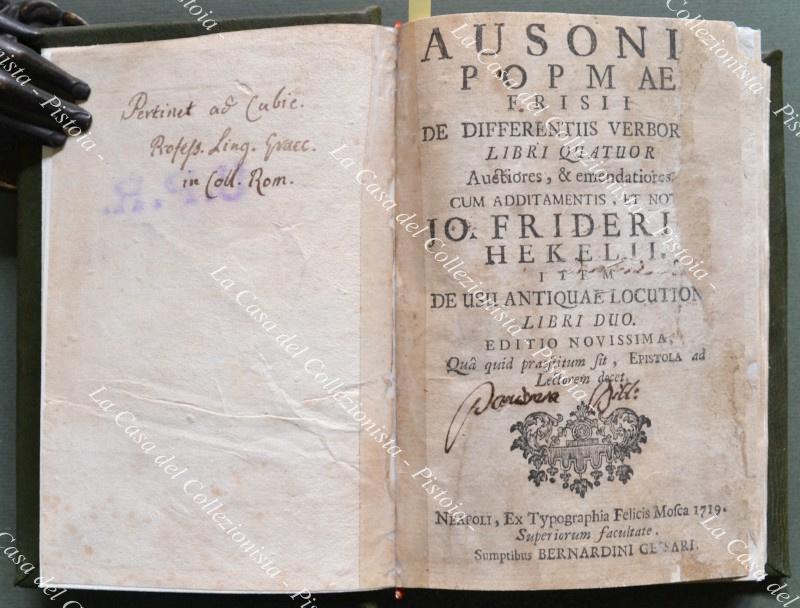 Pertinet ad Cubic.
Profess. Ling. Graec.
in Coll. Rom.
AUSONI
POPMAE
FRISII
DE DIFFERENTIIS VERBOR
LIBRI QUATUOR
Auctiores, & emendatiores
CUM ADDITAMENTIS, ET NO
IO. FRIDERI
HEKELII.
ITEM
DE USU ANTIQUAE LOCUTION
LIBRI DUO.
EDITIO NOVISSIMA,
Quâ quid praestitum sit, EPISTOLA ad
Lectorem docet.
Bibl:
NEAPOLI, Ex Typographia Felicis Mosca 1719.
Superiorum facultate.
Sumptibus BERNARDINI GESSARI.
La Casa del Collezionista - Pistoia -